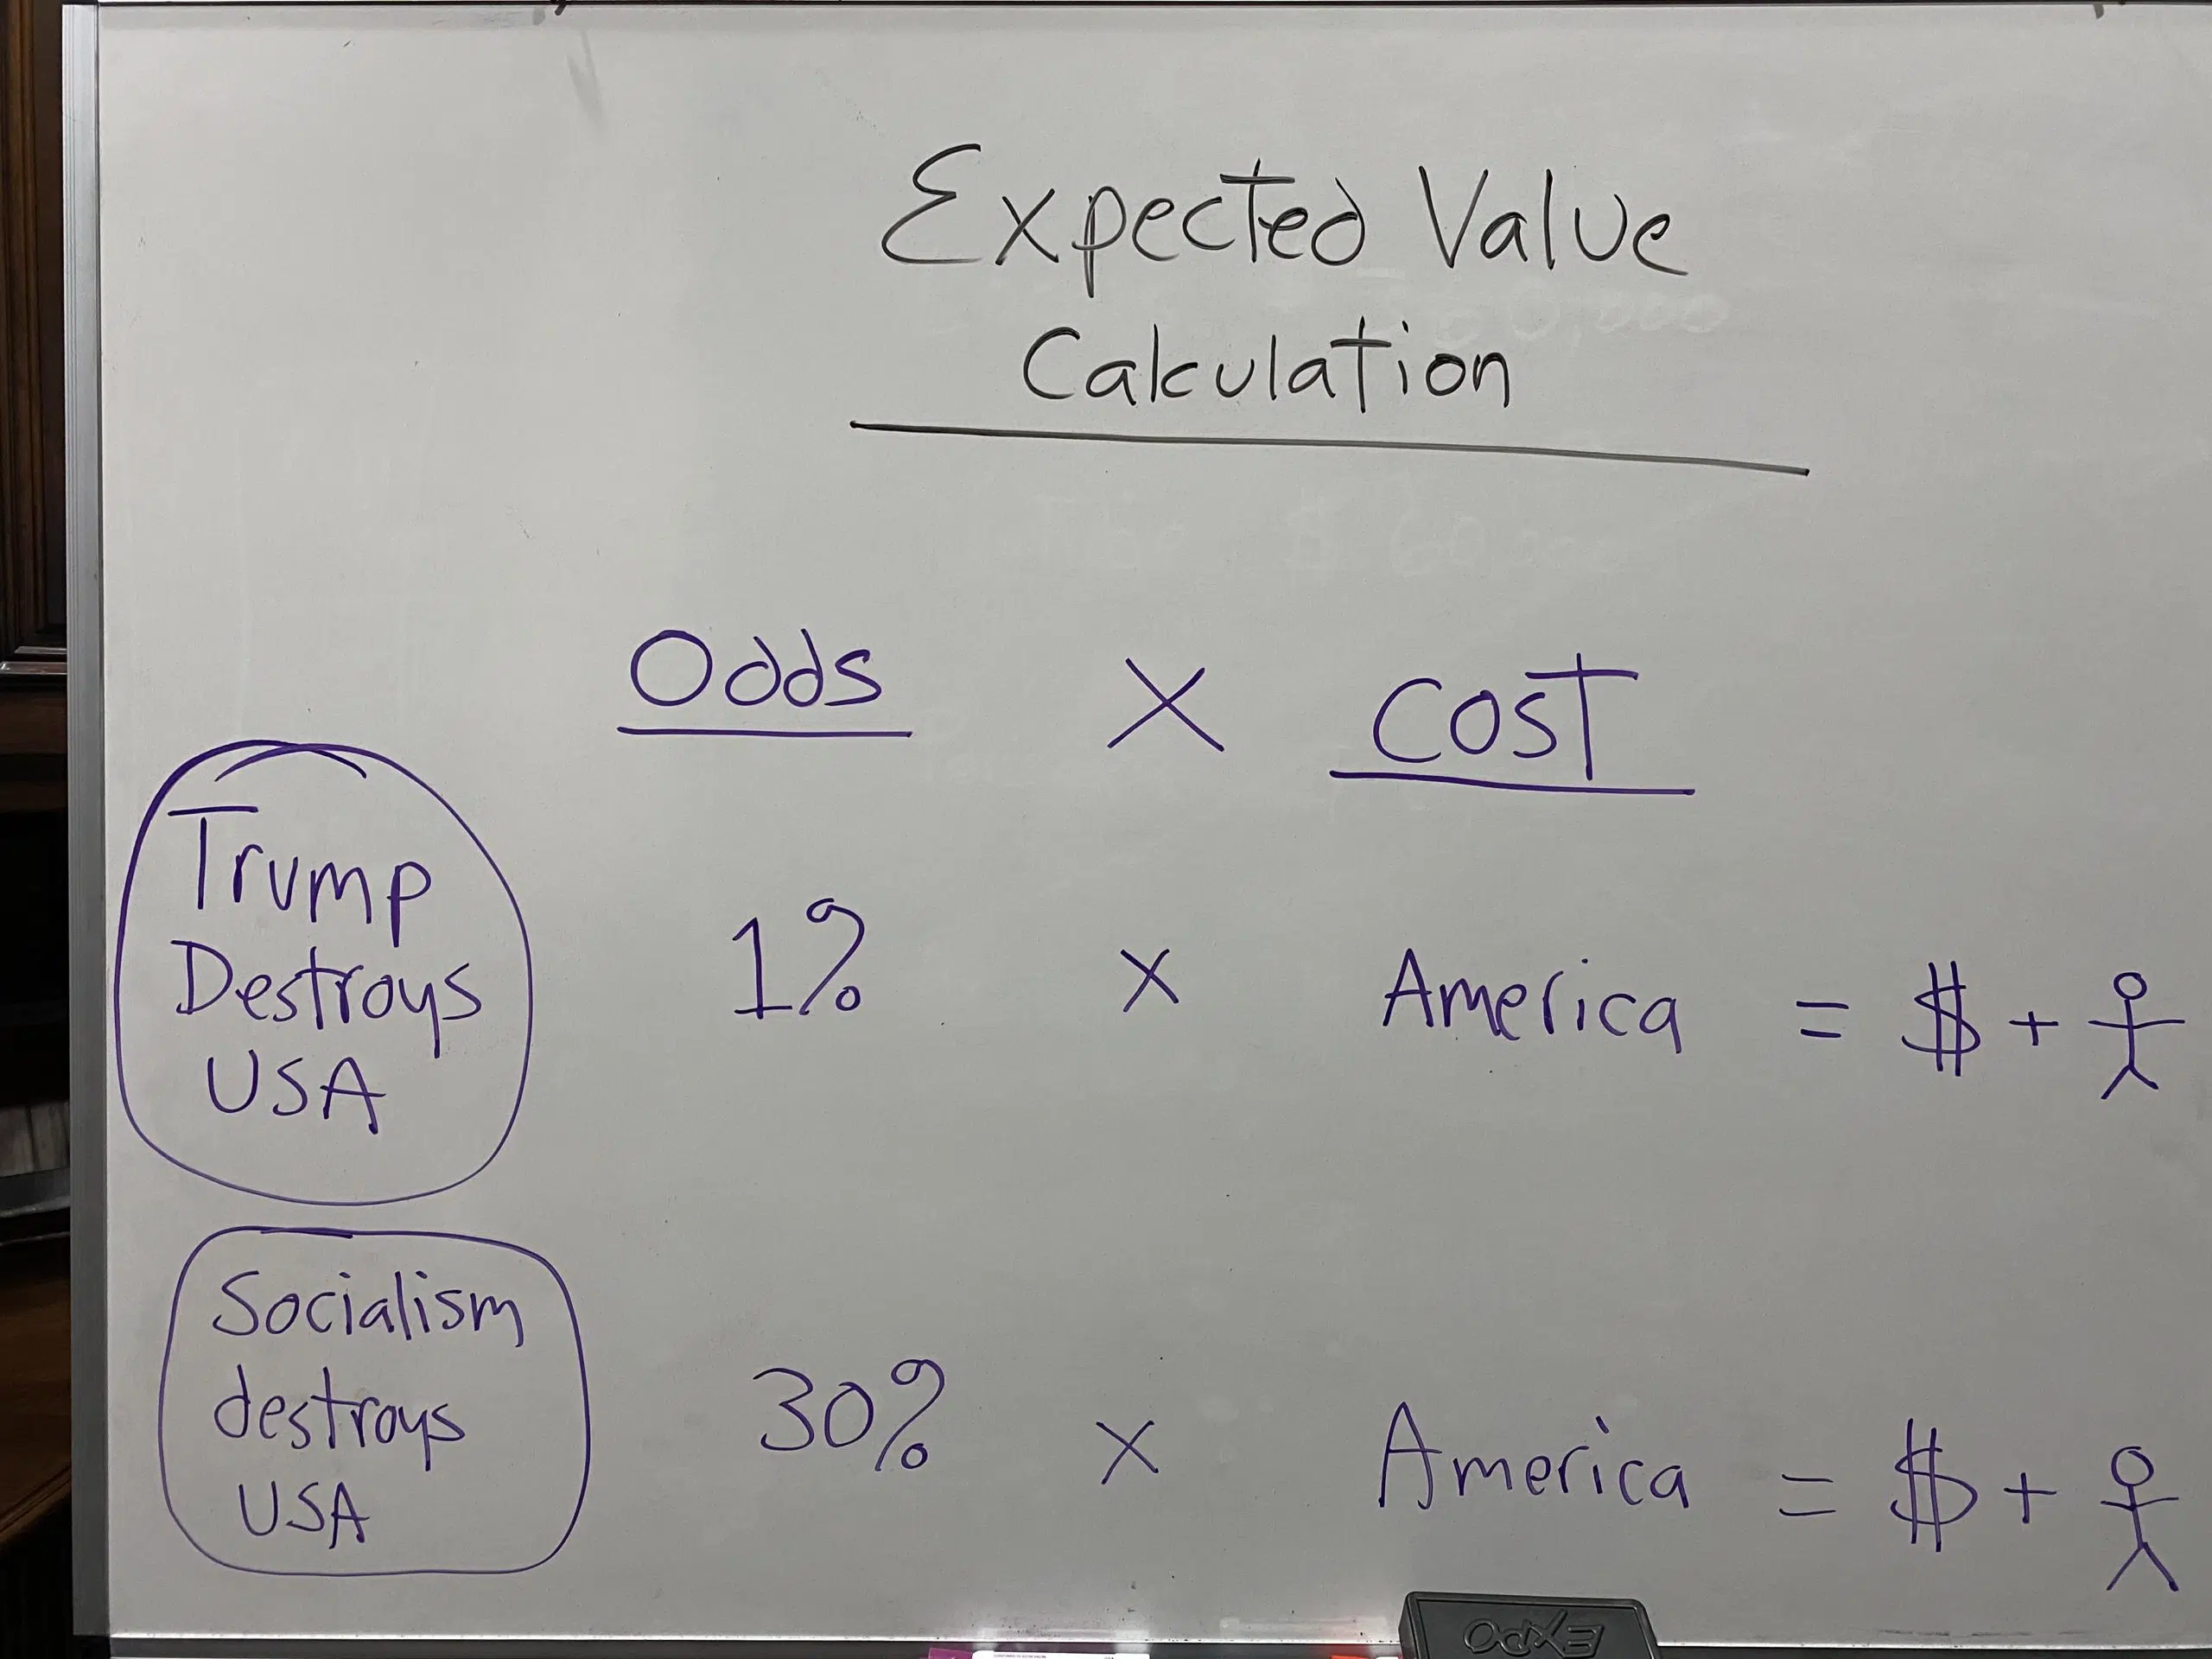 Expected Value
Calculation
Odds X COST
Trump
Destroys
USA
1% x America = $ +
Socialism
destroys
USA
30% x America = $ +
EXPO